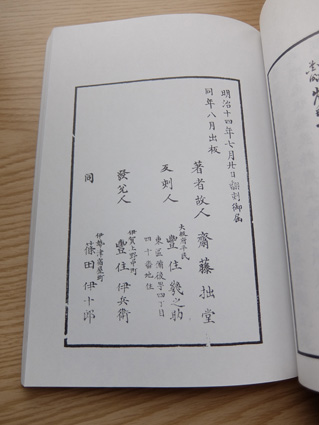 明治十四年七月廿日翻刻御届
同年八月出板
著者故人 齋藤拙堂
大阪府平民
反刻人 豐住幾之助
東區備後町四丁目
四十番地住
伊賀上野中町
發兌人 豐住伊兵衛
伊勢津
同 篠田伊十郎